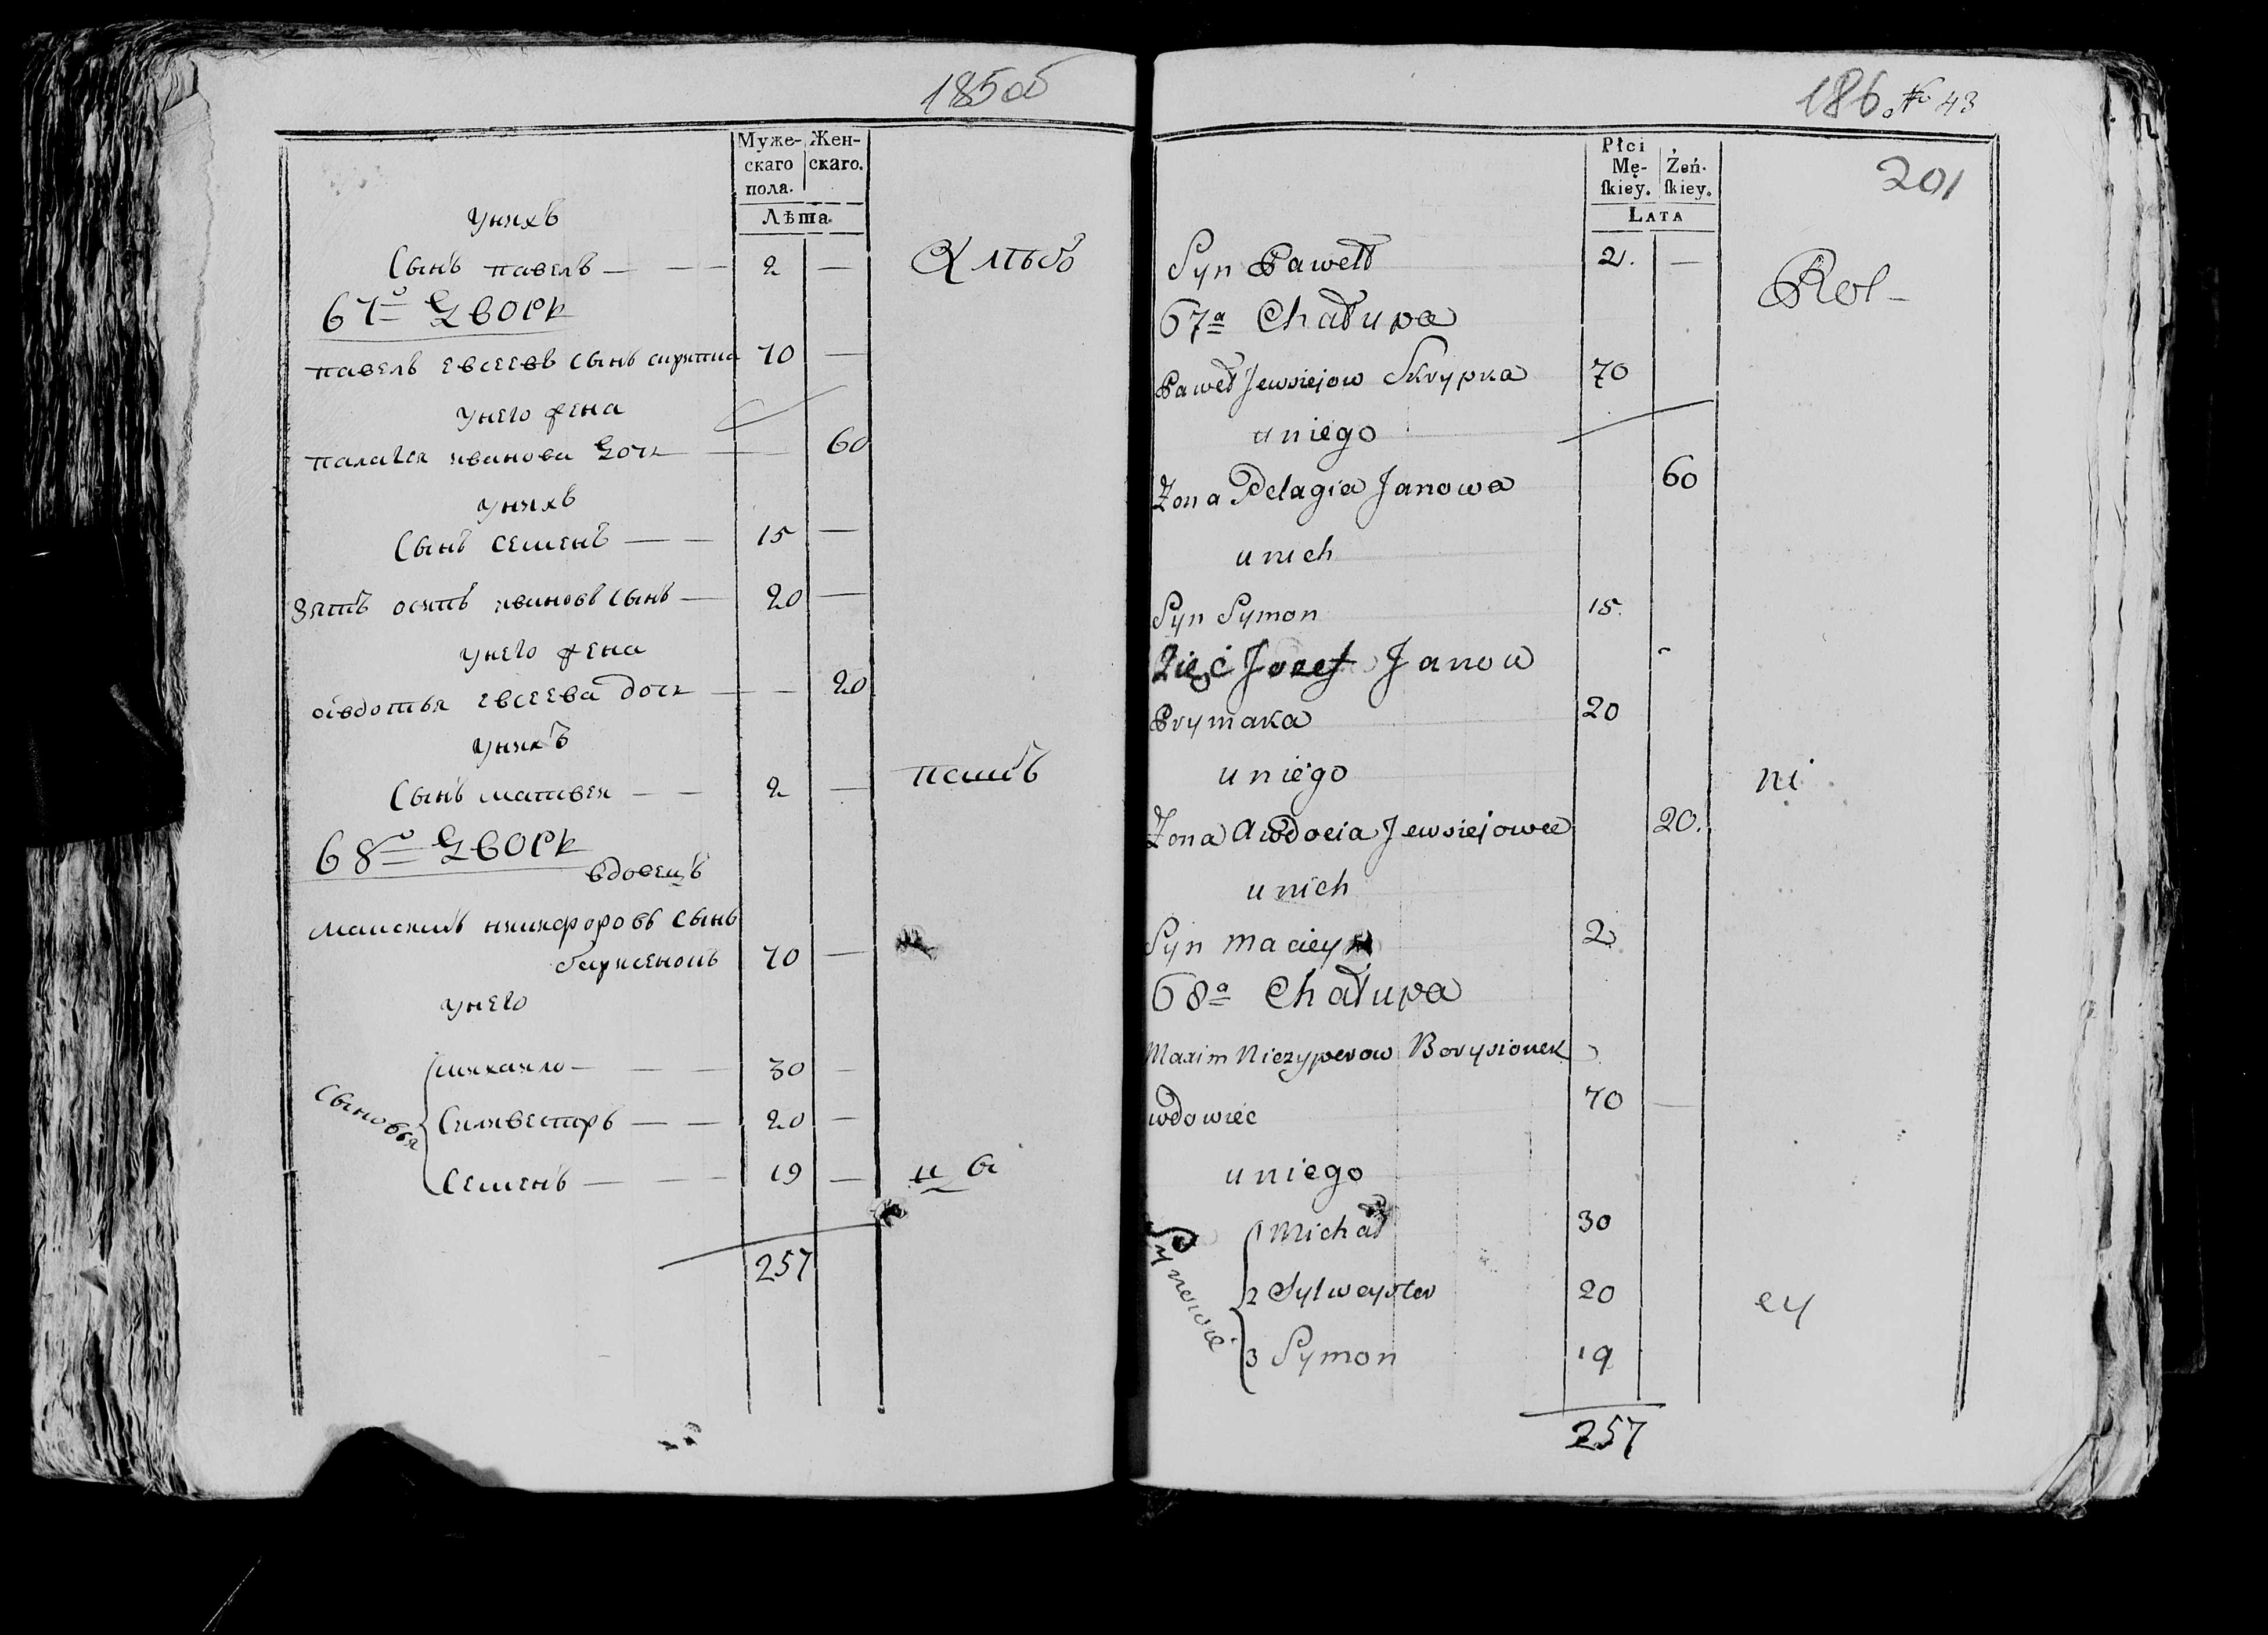 185 об
Муже- Жен-
скаго скаго.
пола.
Лѣта.
унихъ
Сынъ павелъ — — — 2 — Хлѣбо
67й Дворъ
павелъ евсеевъ сынъ скрипка 70 —
унего жена
палагея иванова дочь — — 60
унихъ
Сынъ семенъ — — 15 —
Зять осипъ ивановъ сынъ — 20 —
унего жена
овдотья евсеева дочь — — 20
унихъ
Сынъ матвей — — 2 — пашъ
68й Дворъ
вдовецъ
максимъ никифоровъ сынъ
борисенокъ 70 —
унего
Сыновья
михайло — — — 30 —
Силивестръ — — 20 —
Семенъ — — — 19 — ц ы
257
186 № 43
201
Płci
Mę- Żeń-
ſkiey. ſkiey.
LATA
Syn Paweł 2. — Rol-
67a Chałupa
Paweł Jewsiejow Skrypka 70
u niego
Żona Pelagia Janowa 60
u nich
Syn Symon 15.
Zięć Jozef Janow
Prymaka 20
u niego ni
Żona Awdocia Jewsiejowa 20.
u nich
Syn Maciey 2
68a Chałupa
Maxim Niczyperow Borysionek
wdowiec 70 —
u niego
Synowie
1 Michał 30
2 Sylweyster 20 cy
3 Symon 19
257